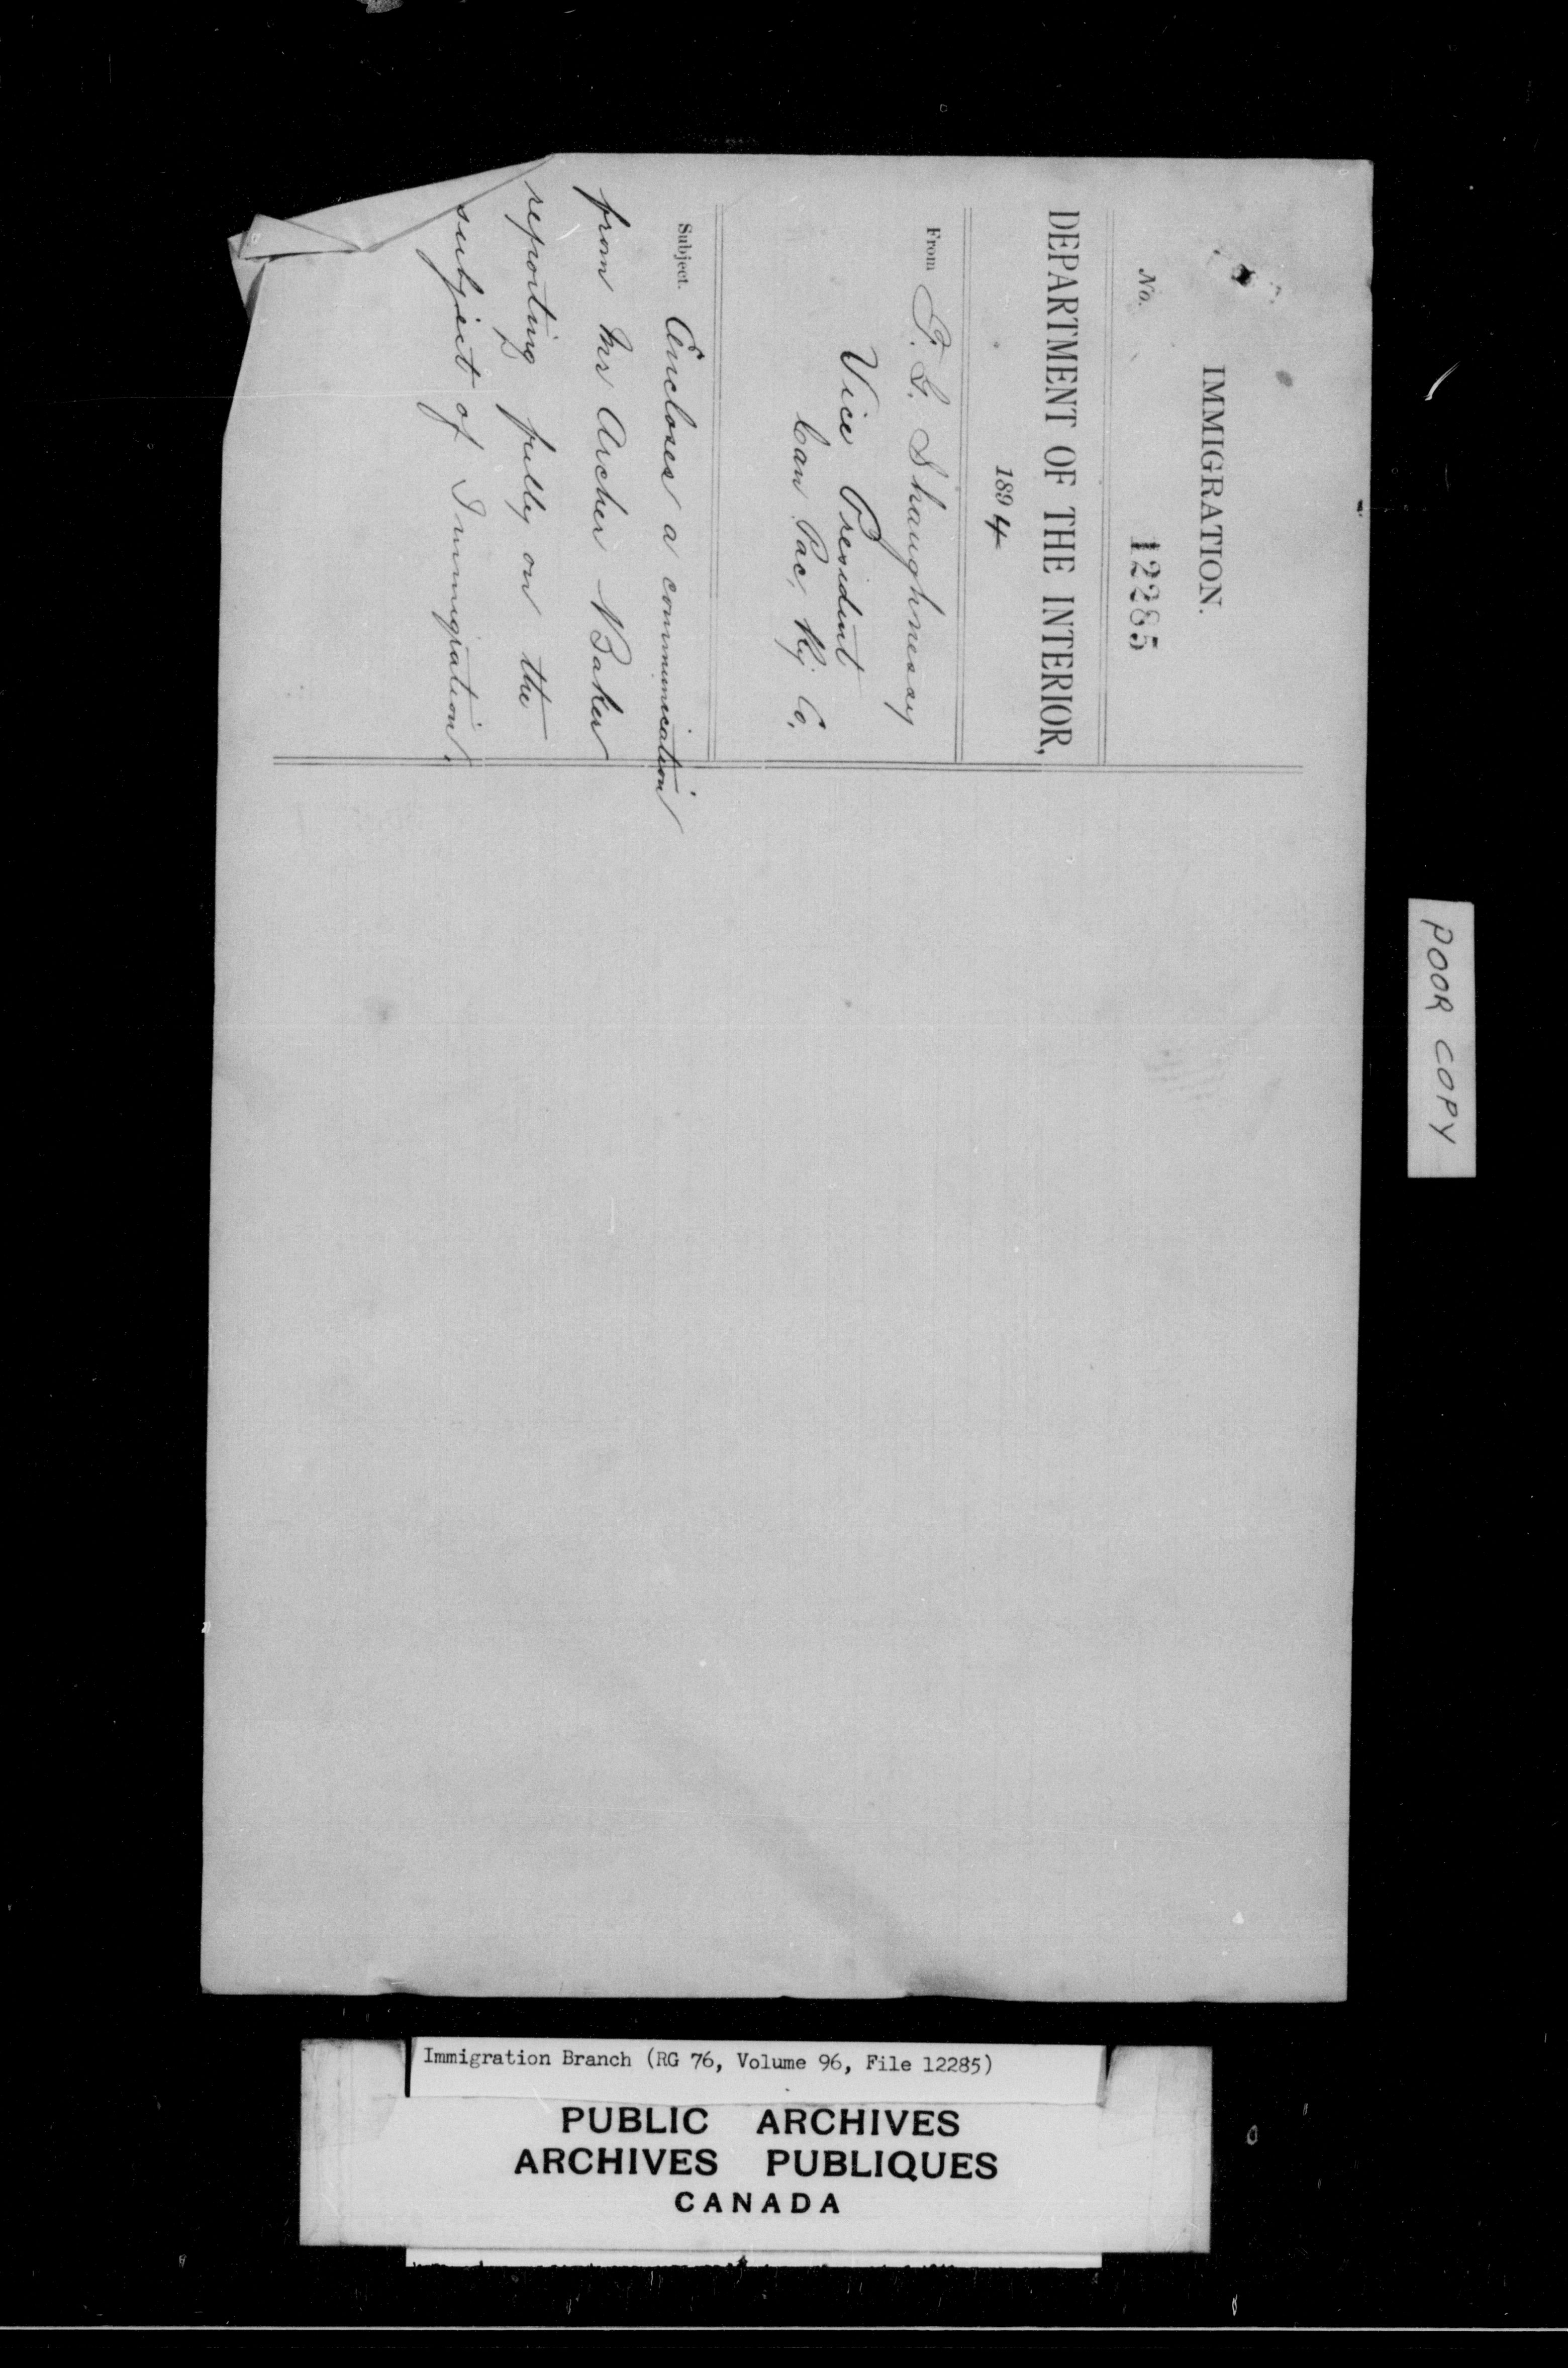 IMMIGRATION.
No. 12285
DEPARTMENT OF THE INTERIOR,
1894
From T. G. Shaughnessy
Vice President
Can Pac. Ry Co.
Subject. Encloses a communication
from Mr Archer Baker
reporting fully on the
subject of Immigration.
POOR COPY
Immigration Branch (RG 76, Volume 96, File 12285)
PUBLIC ARCHIVES
ARCHIVES PUBLIQUES
CANADA